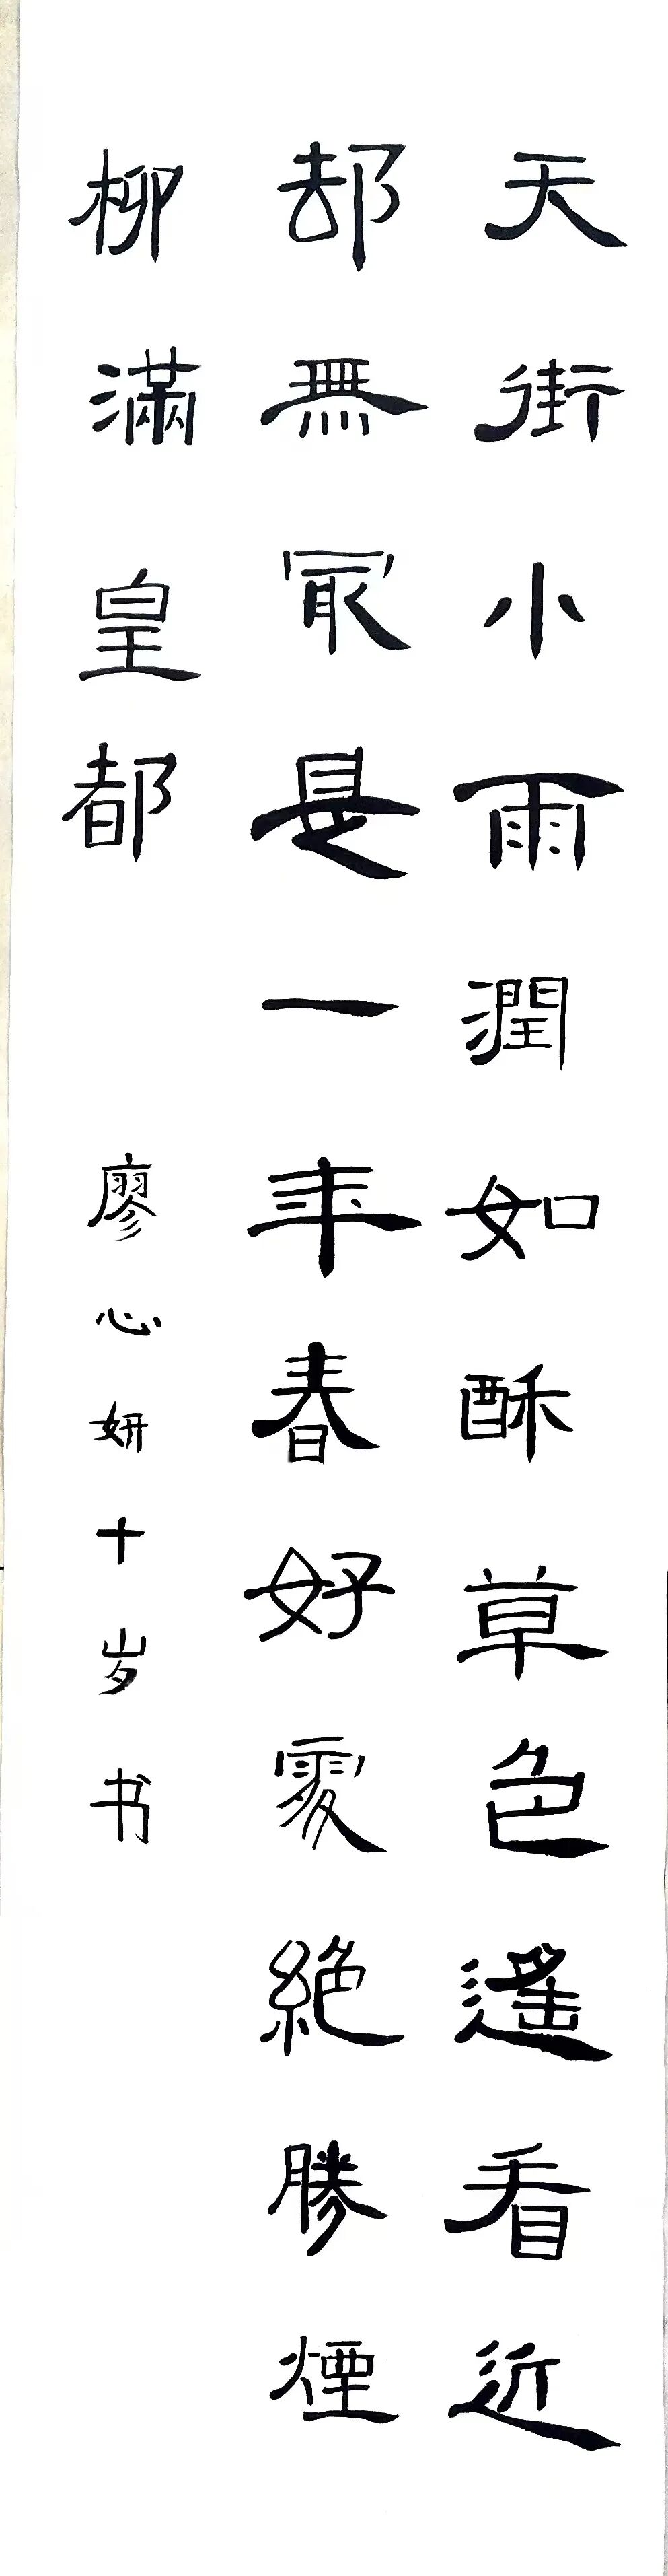 天街小雨潤如酥草色遙看近
却無最是一年春好處絕勝煙
柳滿皇都
廖心妍十岁书